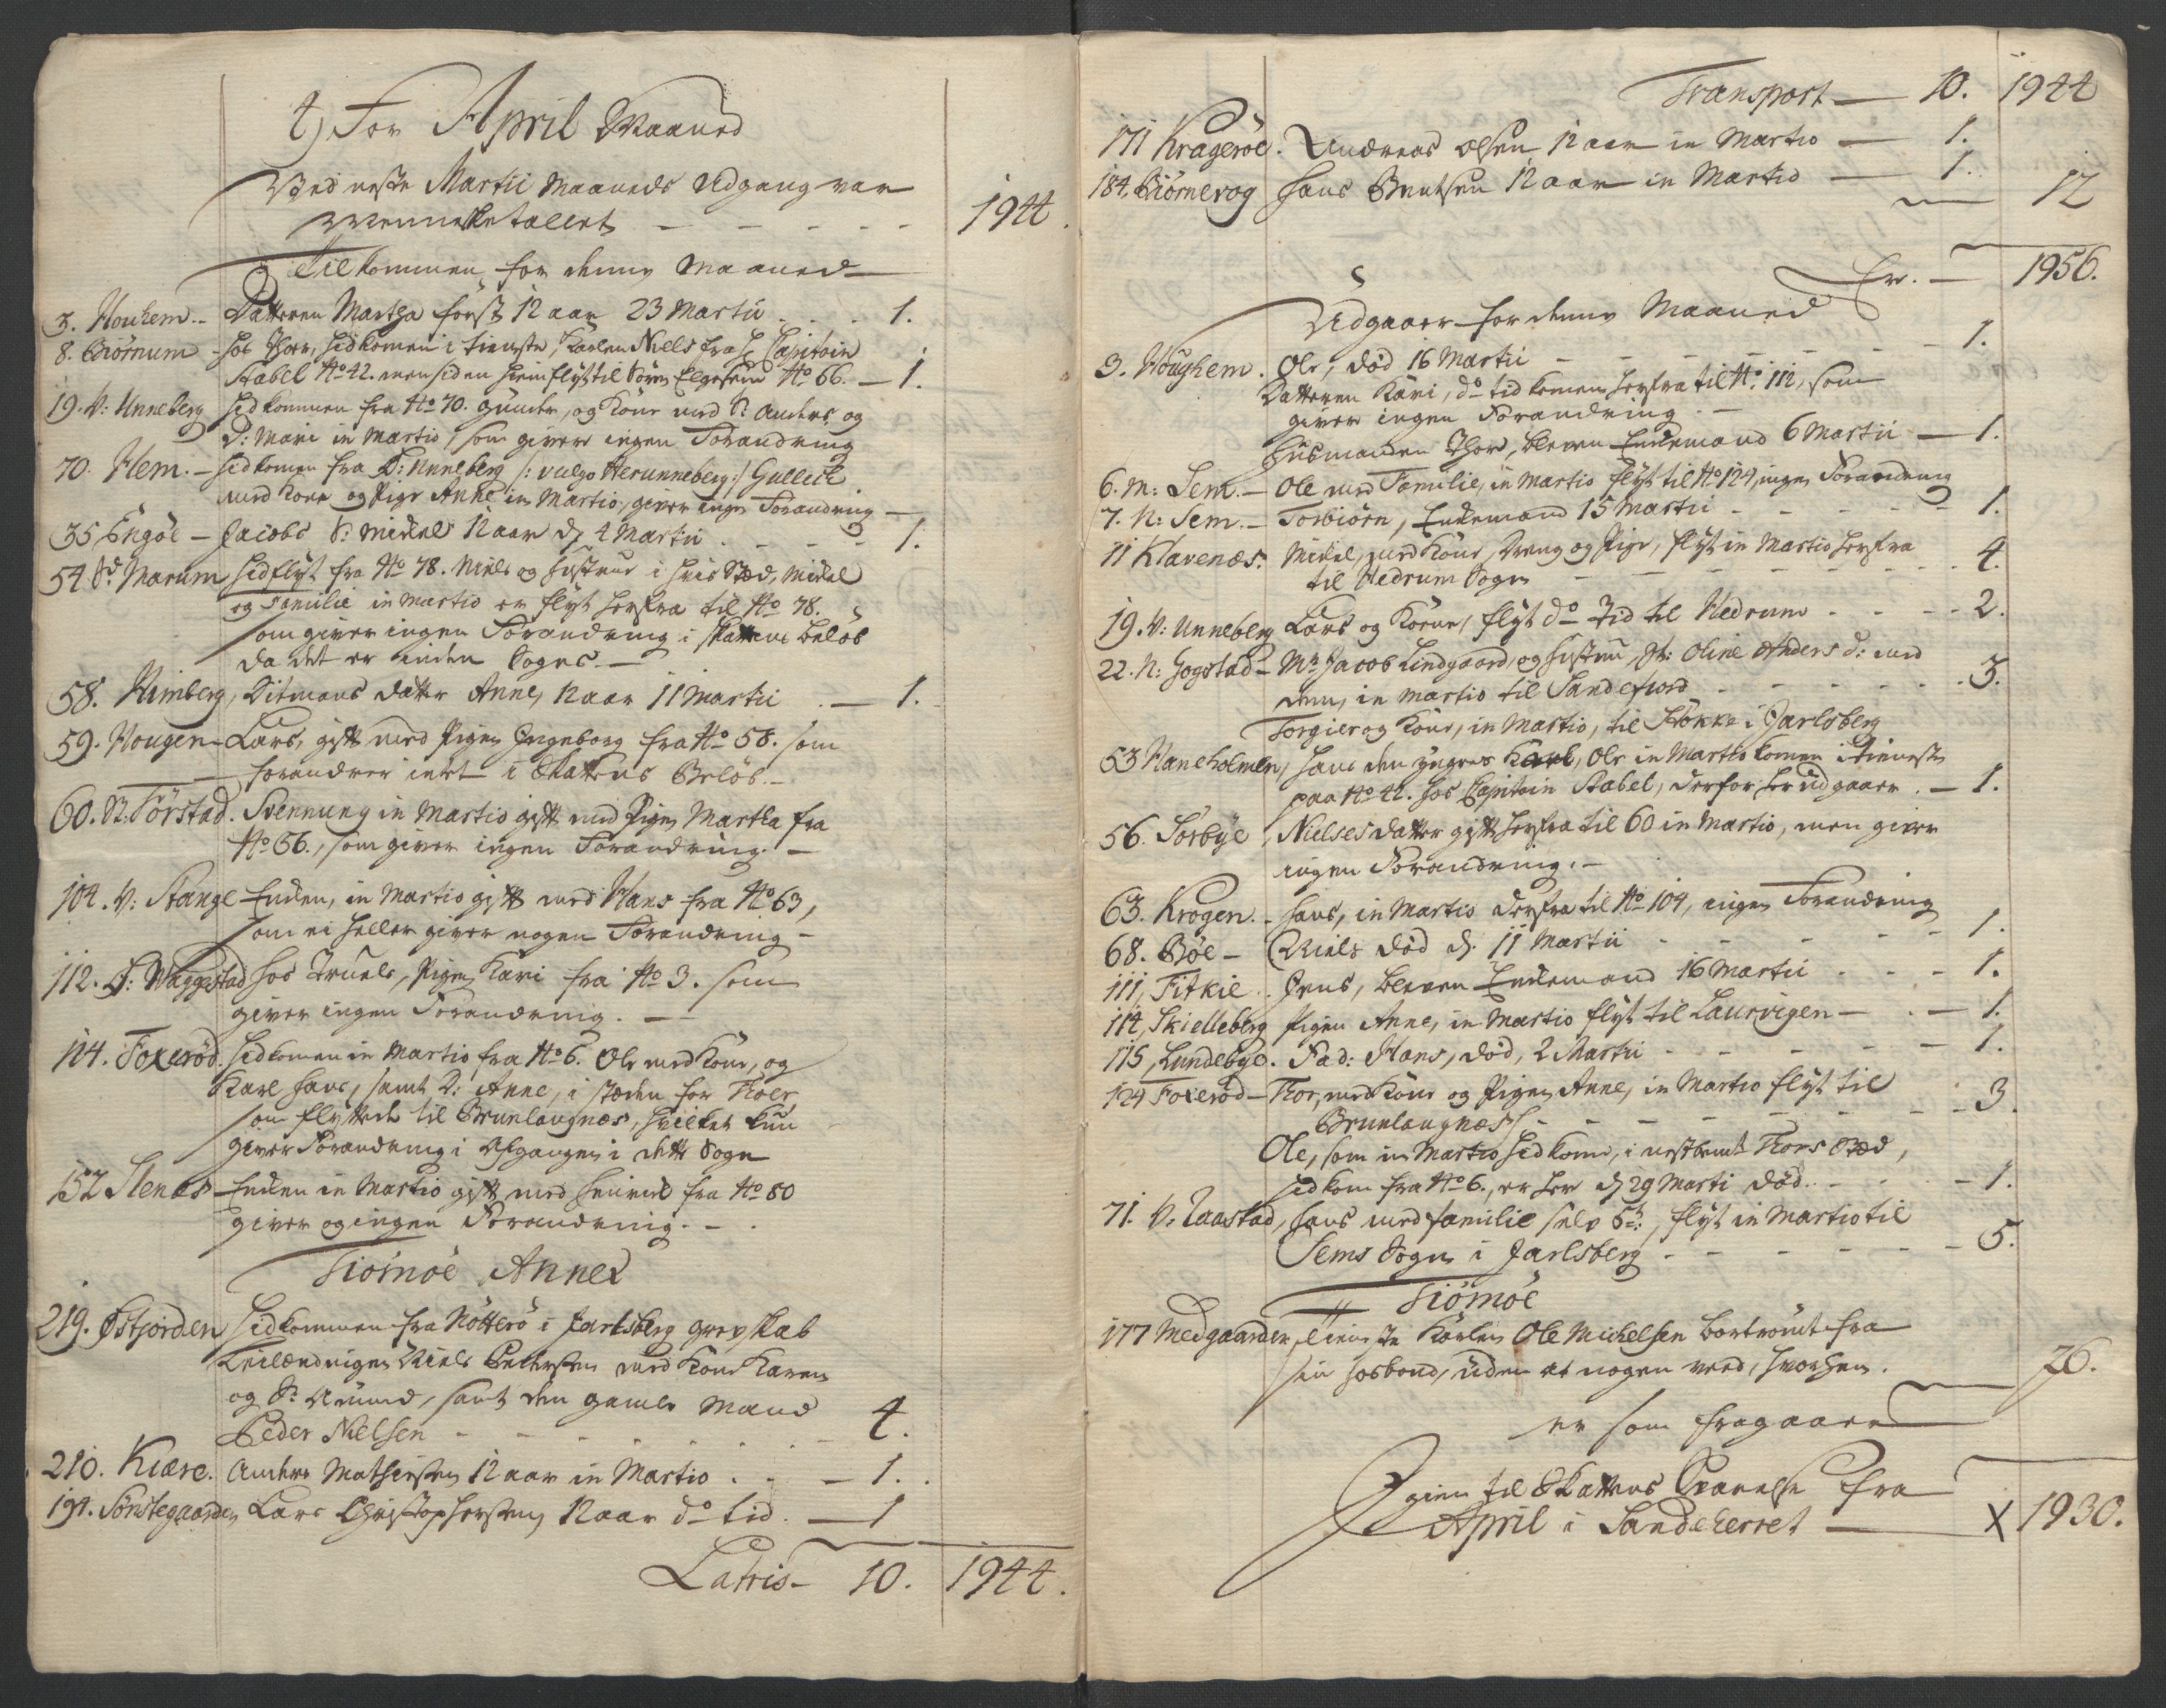 4) For April Maaned
Ved neste Martii Maaneds Udgang var
Menneske tallet - - - - - 1944.
Tilkommen for denne Maaned
3. Houhem - Datteren Martha først 12 aar 23 Martii - - - 1.
8. Biørnum - hos Thoer, hidkomen i tieneste, Karlen Niels fra H Capitain
Stabel No 42. men siden hiemflyt til Søren Elgesem No 66. - 1.
19. V: Unneberg hidkommen fra No 70. Gunder, og Kone med S: Anders og
D: Mari in Martio, som giver ingen Forandring
70. Hem. - hidkomen fra Ø: Unneberg /: vulgo Herunneberg :/ Gulleck
med Kone og Pige Anne in Martio, giver ingen Forandring -
35 Engøe - Jacobs S: Mickel 12 aar d. 4 Martii - - - 1.
54 Sd. Marum hidflyt fra No 78. Niels og Hustrue i hvis Stæd, Mickel
og Familie in Martio er flyt herfra til No 78.
som giver ingen Forandring i Skattens Beløb
da det er inden Sognet. -
58. Himberg, Ditmans datter Anne, 12 aar 11 Martii - 1.
59. Hougen - Lars, gift med Pigen Ingeborg fra No 58. som
forandrer intet i Skattens Beløb. -
60. St. Førstad. Svennung in Martio gift med Pigen Martha fra
No 56., som giver ingen Forandring. -
104. V: Stange Enken, in Martio gift med Hans fra No 63,
som ei heller giver nogen Forandring -
112. Ø: Waggestad hos Truels, Pigen Kari fra No 3. som
giver ingen Forandring. -
124. Foxerød. hidkomen in Martio fra No 6. Ole med Kone, og
Karl Hans, samt D: Anne, i stæden for Thoer
som flyttede til Brunlaugnæs, hvilket kun
giver Forandring i Afgangen i dette Sogn
152 Stenes - Enken in Martio gift med Enken fra No 80
giver og ingen Forandring. -
Tiømøe Annex
219. Østjorden hidkommen fra Nøtterø i Jarlsberg Grevskab
Leilændingen Niels Pedersen med Kone Karen
og S: Amund, samt den gamle Mand
Peder Nielsen - - - - - 4.
210. Kiære. Anders Mathiesen 12 aar in Martio - - 1.
194. Sønstegaarden Lars Christophersen 12 aar do tid. - 1
Latris - 10. 1944.
Transport - 10. 1944
171 Kragerøe. Andreas Olsen 12 aar in Martio - 1.
184. Biørnevog Hans Bentsen 12 aar in Martio - 1. 12
Er. - 1956.
Udgaaer for denne Maaned
3. Houghem. Ole, død 16 Martii - - - - - 1.
Datteren Kari, do tid komen herfra til No. 112, som
giver ingen Forandring. -
Huusmanden Thor, bleven Enkemand 6 Martii - 1.
6. M: Sem. - Ole med Familie, in Martio flyt til No 124, ingen Forandring
7. N: Sem. - Torbiørn, Enkemand 15 Martii - - - - 1.
11 Klavenæs. Mickel, med Kone, Dreng og Pige, flyt in Martio herfra
til Hedrum Sogn - - - - - 4.
19. V: Unneberg Lars og Kone, flyt do Tid til Hedrum - - - 2.
22. N: Gogstad - Mr Jacob Lindgaard, og Hustrue, St: Oline Anders d: med
dem, in Martio til Sandefiord - - - - - 3.
Torgier og Kone, in Martio, til Stokke i Jarlsberg
53 Haneholmen, Hans den yngres Karl, Ole in Martio komen i tieneste
paa No 42. hos Capitain Stabel, derfor her udgaaer. - 1.
56. Sørbye, Nielses datter gift herfra til 60 in Martio, men giver
ingen Forandring. -
63. Krogen. - Hans, in Martio herfra til No 104, ingen Forandring
68. Bøe - Niels død d. 11 Martii - - - - 1.
111, Fitkie. Jens, bleven Enkemand 16 Martii - - - 1.
114, Skielleberg Pigen Anne, in Martio flyt til Laurvigen - - 1.
115, Lundebye. Fad: Hans, død, 2 Martii - - - - 1.
124 Foxerød - Thor, med Kone og Pigen Anne, in Martio flyt til
Brunlaugnæss - - - - - 3.
Ole, som in Martio hidkom, i nestbemt: Thors Stæd,
hidkom fra No 6., er her d. 29 Marti død. - - - 1.
71. V. Raastad, Hans med familie selv 5te:, flyt in Martio til
Sems Sogn i Jarlsberg - - - - - 5.
Tiømøe
177 Medgaarden, Tieneste Karlen Ole Michelsen bortrømt fra
sin Hosbond, uden at nogen veed, hvorhen.
er som fragaaer 26.
Igien til Skattens Svarelse fra
April i Sandeherret - X 1930.